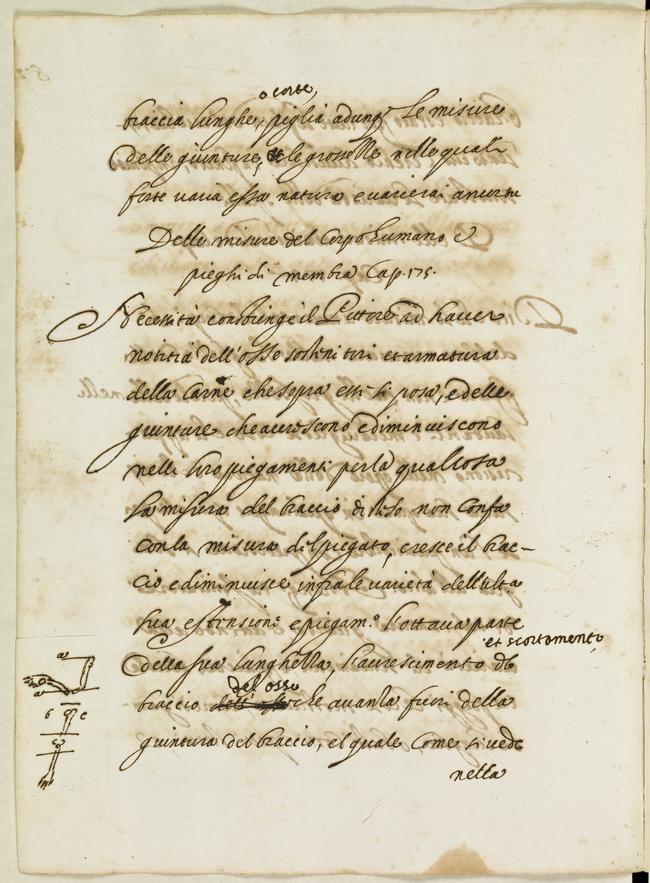 o corte,
braccia lunghe, piglia adunq; le misure
delle giunture, et le grossezze nelle quali
forte varia essa natura e varierai ancor tu
Delle misure del Corpo humano e
pieghi di membra Cap. 175.
Necessità constringe il Pittore ad haver
notitia dell'osse sostenitori et armatura
della Carne che sopra essi si posa, e delle
giunture che acrescono e diminuiscono
nelli loro piegamenti per la qual cosa
la misura del braccio disteso non confa
con la misura del piegato, cresce il brac-
cio e diminuisce infra le varietà dell'ulta
sua estensione e piegam.o l'ottava parte
et scortamento
della sua lunghezza, l'acrescimento de
del osso
braccio che avanza fuori della
giuntura del braccio, el quale come si vede
nella
a
a
b c